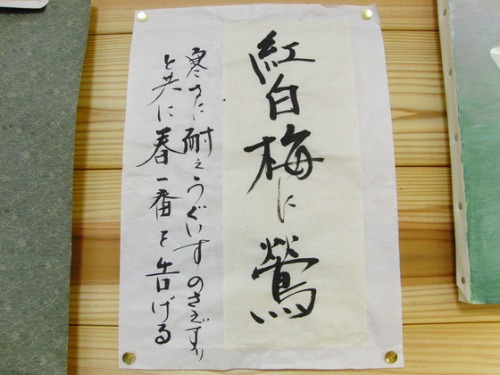 紅白梅に鶯
寒さに耐えうぐいすのさえずり
と共に春一番を告げる